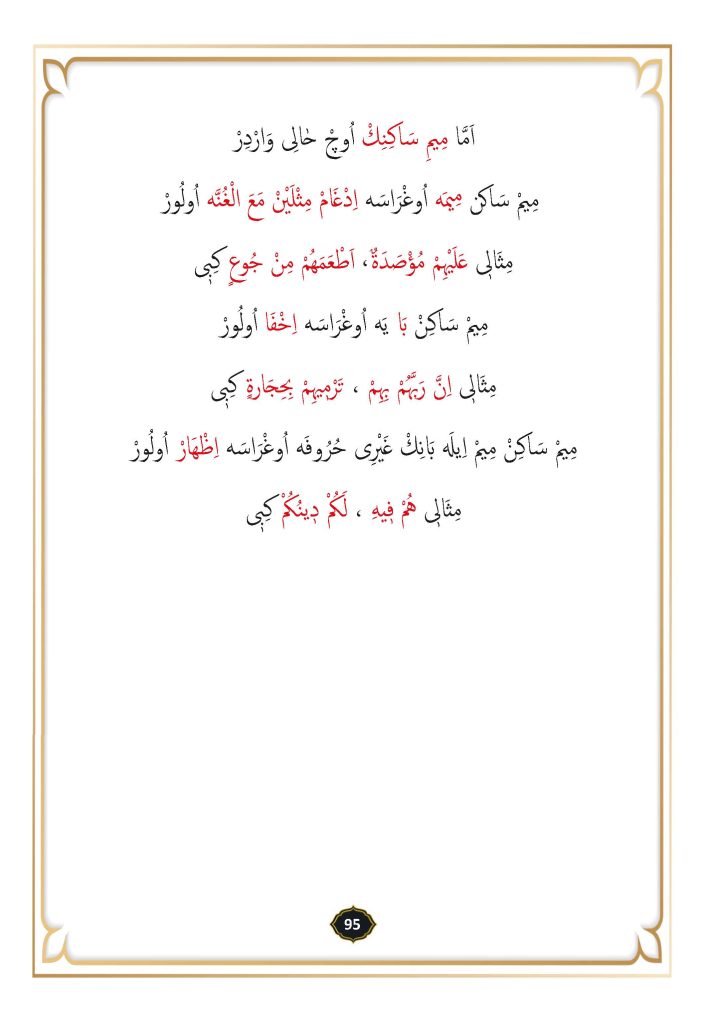 اَمَّا مِيمِ سَاكِنِكْ اُوچْ حَالِى وَارْدِرْ
مِيمْ سَاكَن مِيمَه اُوغْرَاسَه اِدْغَامْ مِثْلَيْنْ مَعَ الْغُنَّه اُولُورْ
مِثَالِى عَلَيْهِمْ مُؤْصَدَةٌ، اَطْعَمَهُمْ مِنْ جُوعٍ كِبِى
مِيمْ سَاكِنْ بَا يَه اُوغْرَاسَه اِخْفَا اُولُورْ
مِثَالِى اِنَّ رَبَّهُمْ بِهِمْ ، تَرْمِيهِمْ بِحِجَارَةٍ كِبِى
مِيمْ سَاكِنْ مِيمْ اِيلَه بَانِكْ غَيْرِى حُرُوفَه اُوغْرَاسَه اِظْهَارْ اُولُورْ
مِثَالِى هُمْ فِيهِ ، لَكُمْ دِينُكُمْ كِبِى
95